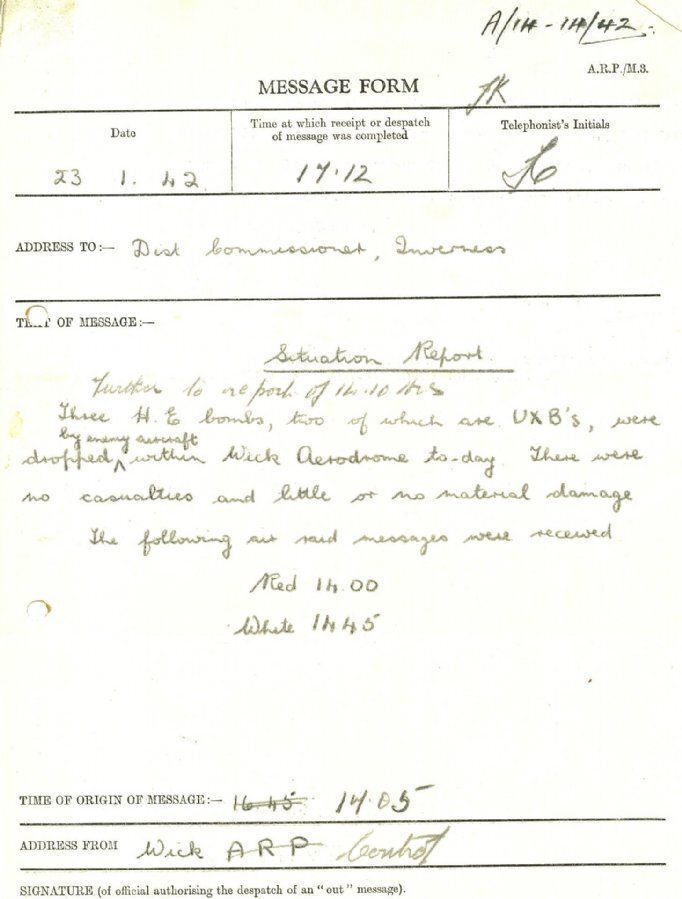 A/14 - 14/42.
A.R.P./M.3.
MESSAGE FORM
JK
Date
Time at which receipt or despatch
of message was completed
Telephonist's Initials
23 1. 42
17.12
ADDRESS TO:— Dist Commissioner, Inverness
TEXT OF MESSAGE:—
Situation Report.
Further to report of 14.10 hrs
Three H.E bombs, two of which are UXB's, were
by enemy aircraft
dropped ^ within Wick Aerodrome to-day. There were
no casualties and little or no material damage
The following air raid messages were received
Red 14.00
White 1445
TIME OF ORIGIN OF MESSAGE:— 16.45 17.05
ADDRESS FROM Wick ARP Control
SIGNATURE (of official authorising the despatch of an "out" message).